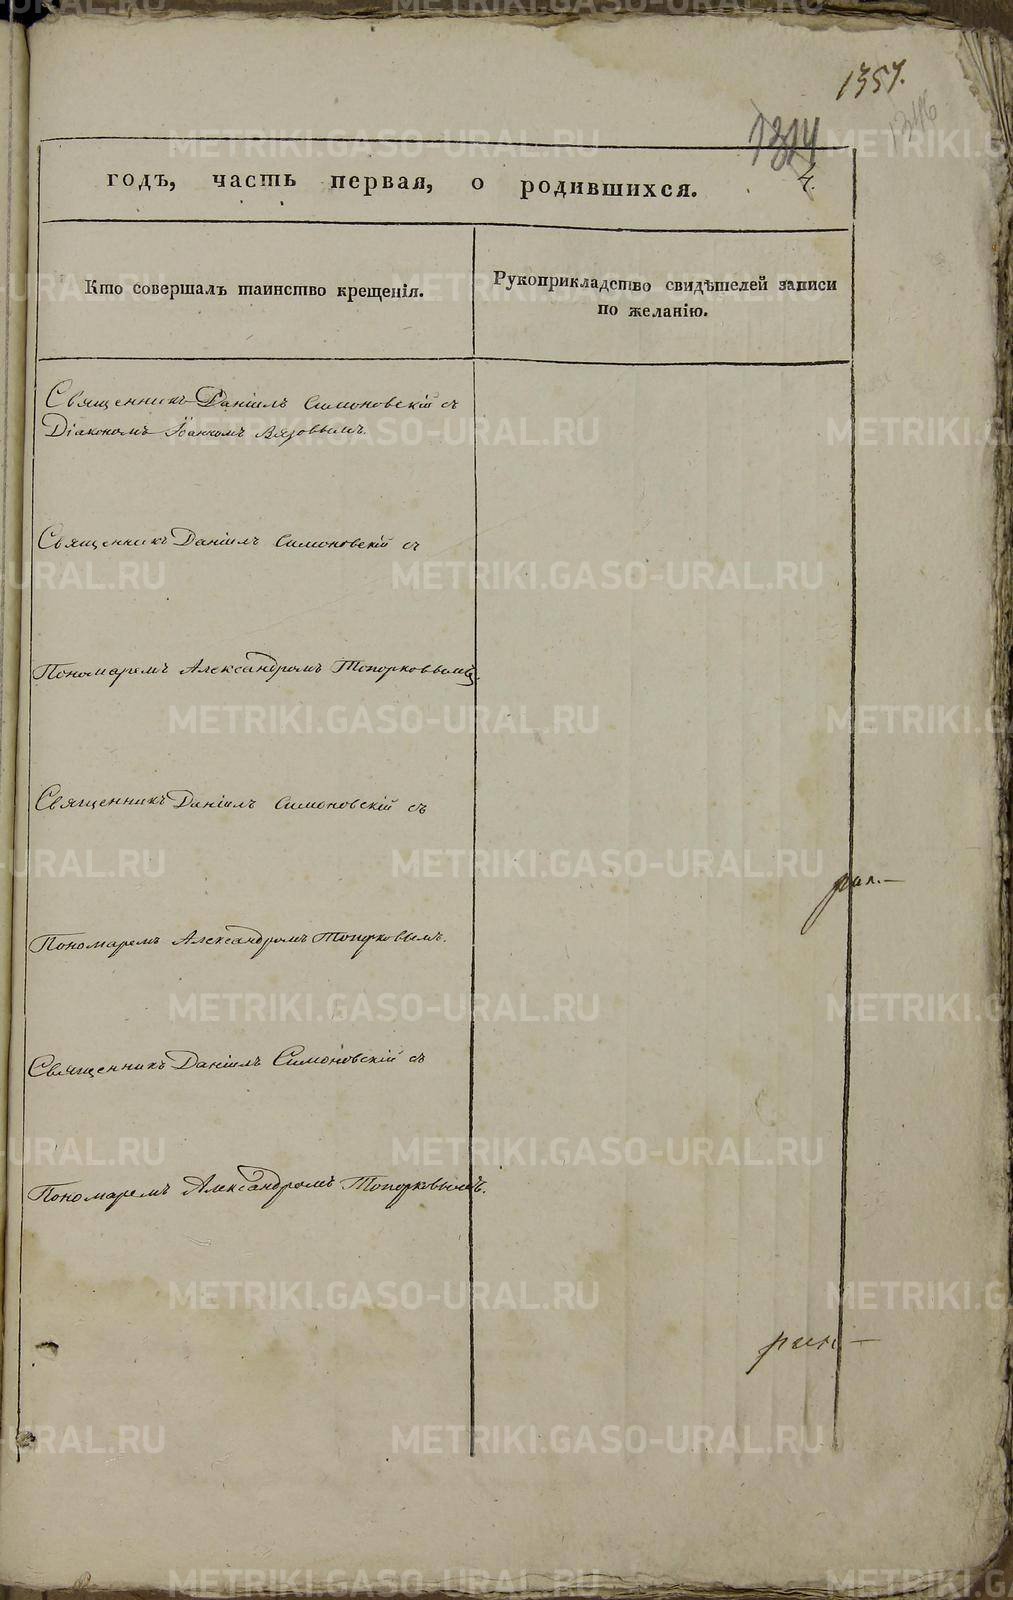 1357.
1346
1314
4.
годъ, часть первая, о родившихся.
Кто совершалъ таинство крещенія.
Рукоприкладство свидѣтелей записи
по желанію.
Священникъ Даніилъ Симоновскій съ
Діакономъ Іоанномъ Вязовымъ.
Священникъ Даніилъ Симоновскій съ
Пономаремъ Александромъ Топорковымъ.
Священникъ Даніилъ Симоновскій съ
Пономаремъ Александромъ Топорковымъ.
Священникъ Даніилъ Симоновскій съ
Пономаремъ Александромъ Топорковымъ.
METRIKI.GASO-URAL.RU